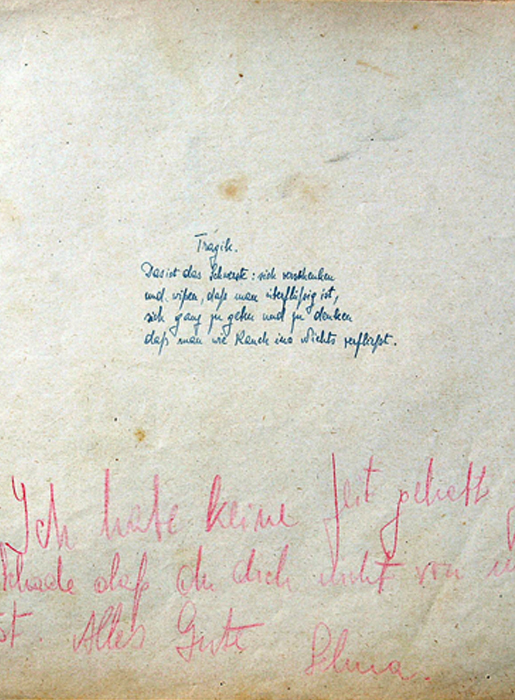 Tragik.
Das ist das Schwerste: sich verschenken
und wißen, daß man überflüßig ist,
sich ganz zu geben und zu denken
daß man wie Rauch ins Nichts verfließt.
Ich habe keine Zeit gehabt
schade daß du dich nicht von
st. Alles Gute Selma.